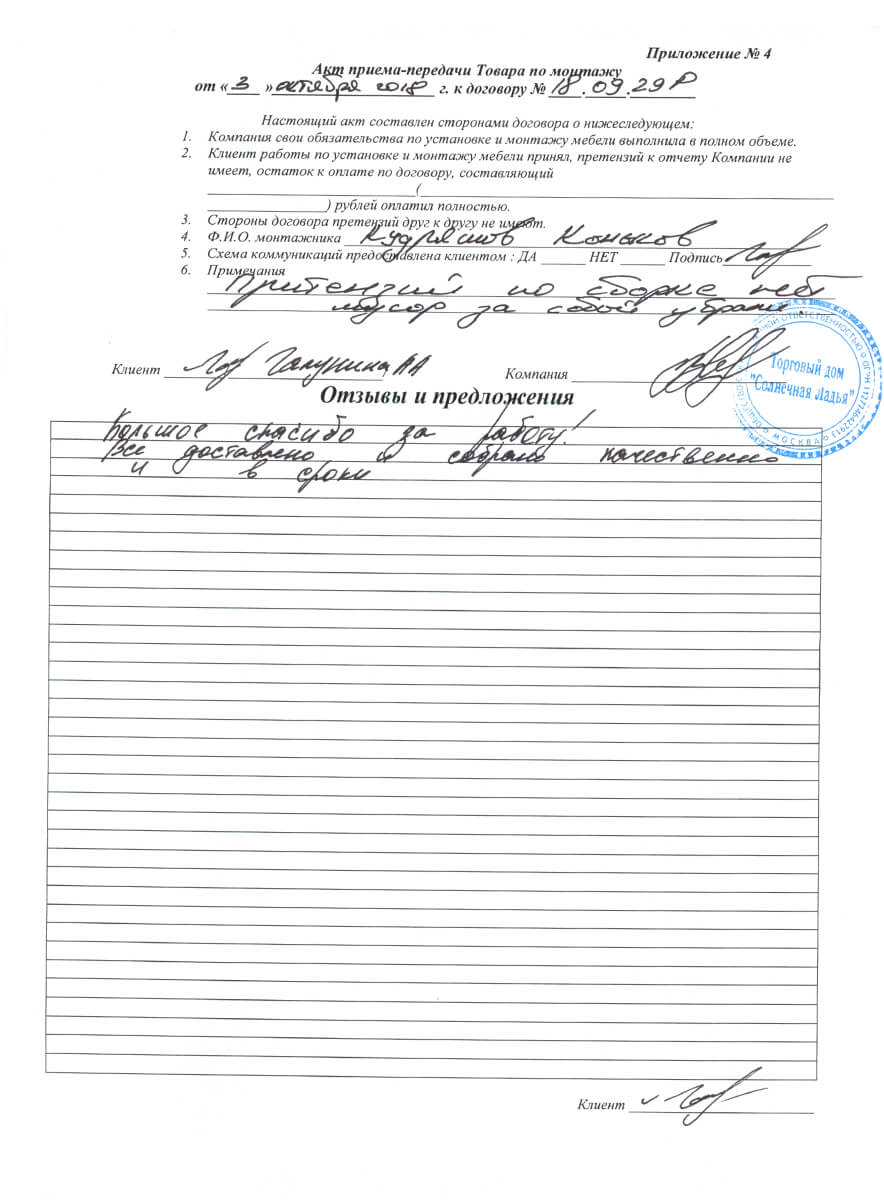 Приложение № 4
Акт приема-передачи Товара по монтажу
от «3» октября 2018 г. к договору № 18.09.29Р
Настоящий акт составлен сторонами договора о нижеследующем:
1. Компания свои обязательства по установке и монтажу мебели выполнила в полном объеме.
2. Клиент работы по установке и монтажу мебели принял, претензий к отчету Компании не
имеет, остаток к оплате по договору, составляющий
(
) рублей оплатил полностью.
3. Стороны договора претензий друг к другу не имеют.
4. Ф.И.О. монтажника Кудряшов Коньков
5. Схема коммуникаций предоставлена клиентом : ДА НЕТ Подпись
6. Примечания
Притензий по сборке нет
мусор за собой убрали
Клиент Галунина АА Компания
Торговый дом
"Солнечная Ладья"
МОСКВА
Отзывы и предложения
Большое спасибо за работу!
Все доставлено и собрано качественно
и в сроки
Клиент